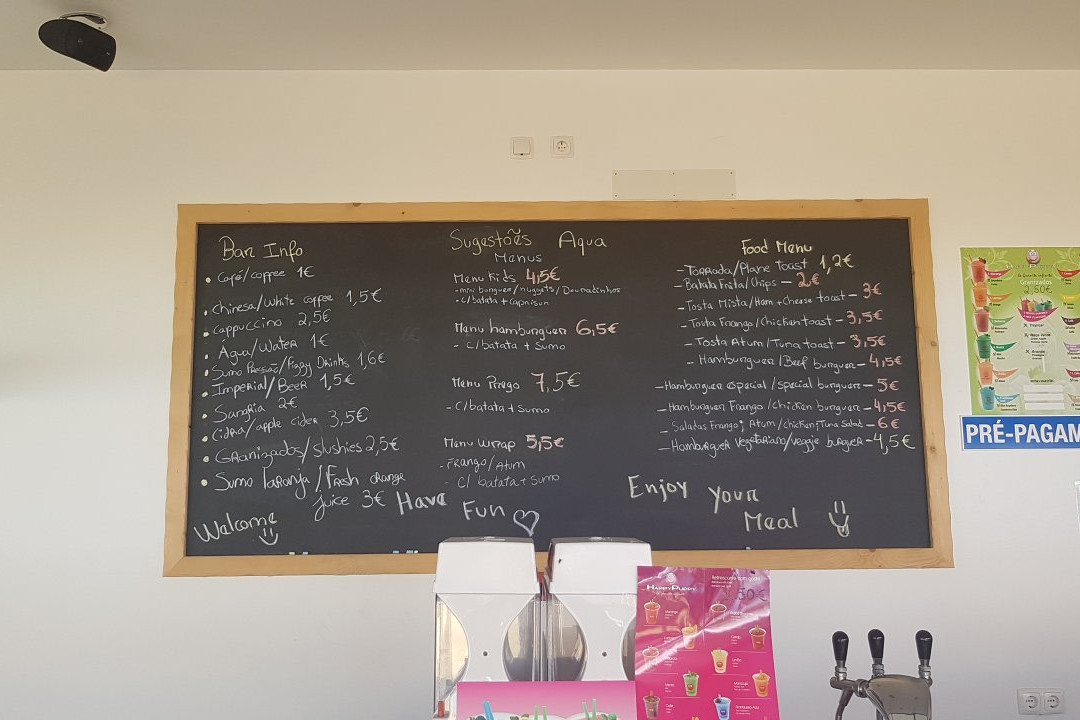 Bar Info
• Café/coffee 1€
• chinesa/White coffee 1,5€
• cappuccino 2,5€
• Água/Water 1€
• Sumo Pressão/Fizzy Drinks 1,6€
• Imperial/Beer 1,5€
• Sangria 2€
• cidra/apple cider 3,5€
• Granizados/slushies 2,5€
• Sumo laranja/Fresh orange
juice 3€
Welcome
Have
Fun
Sugestões Aqua
Menus
Menu kids 4,5€
- mini burguer/nuggets/Douradinhos
- c/batata + caprisun
Menu hamburguer 6,5€
- C/batata + Sumo
Menu Prego 7,5€
- C/batata + sumo
Menu wrap 5,5€
- Frango/Atum
- C/ batata + Sumo
Food Menu
- Torrada/Plane toast 1,2€
- Batata Frita/Chips - 2€
- Tosta Mista/Ham + cheese toast - 3€
- Tosta Frango/Chicken toast - 3,5€
- Tosta Atum/Tuna toast - 3,5€
- Hamburguer/Beef burguer - 4,5€
- Hamburguer especial/special burguer - 5€
- Hamburguer Frango/chicken burguer - 4,5€
- Saladas Frango, Atum/chicken, Tuna Salad - 6€
- Hamburguer vegetariano/veggie burguer - 4,5€
Enjoy your
Meal
HAPPY PUPPY
Granizados
2,50€
PRÉ-PAGAM
HAPPY PUPPY